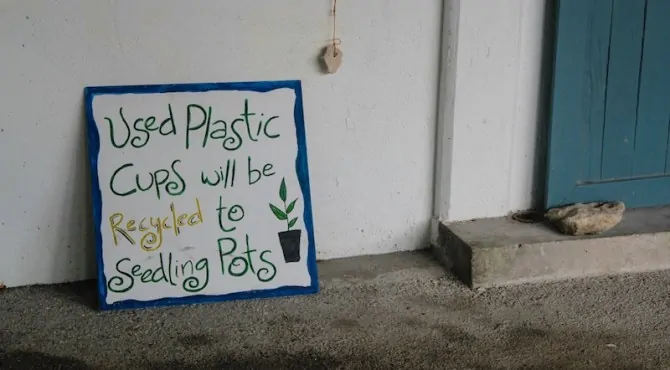 Used Plastic
Cups will be
Recycled to
Seedling Pots